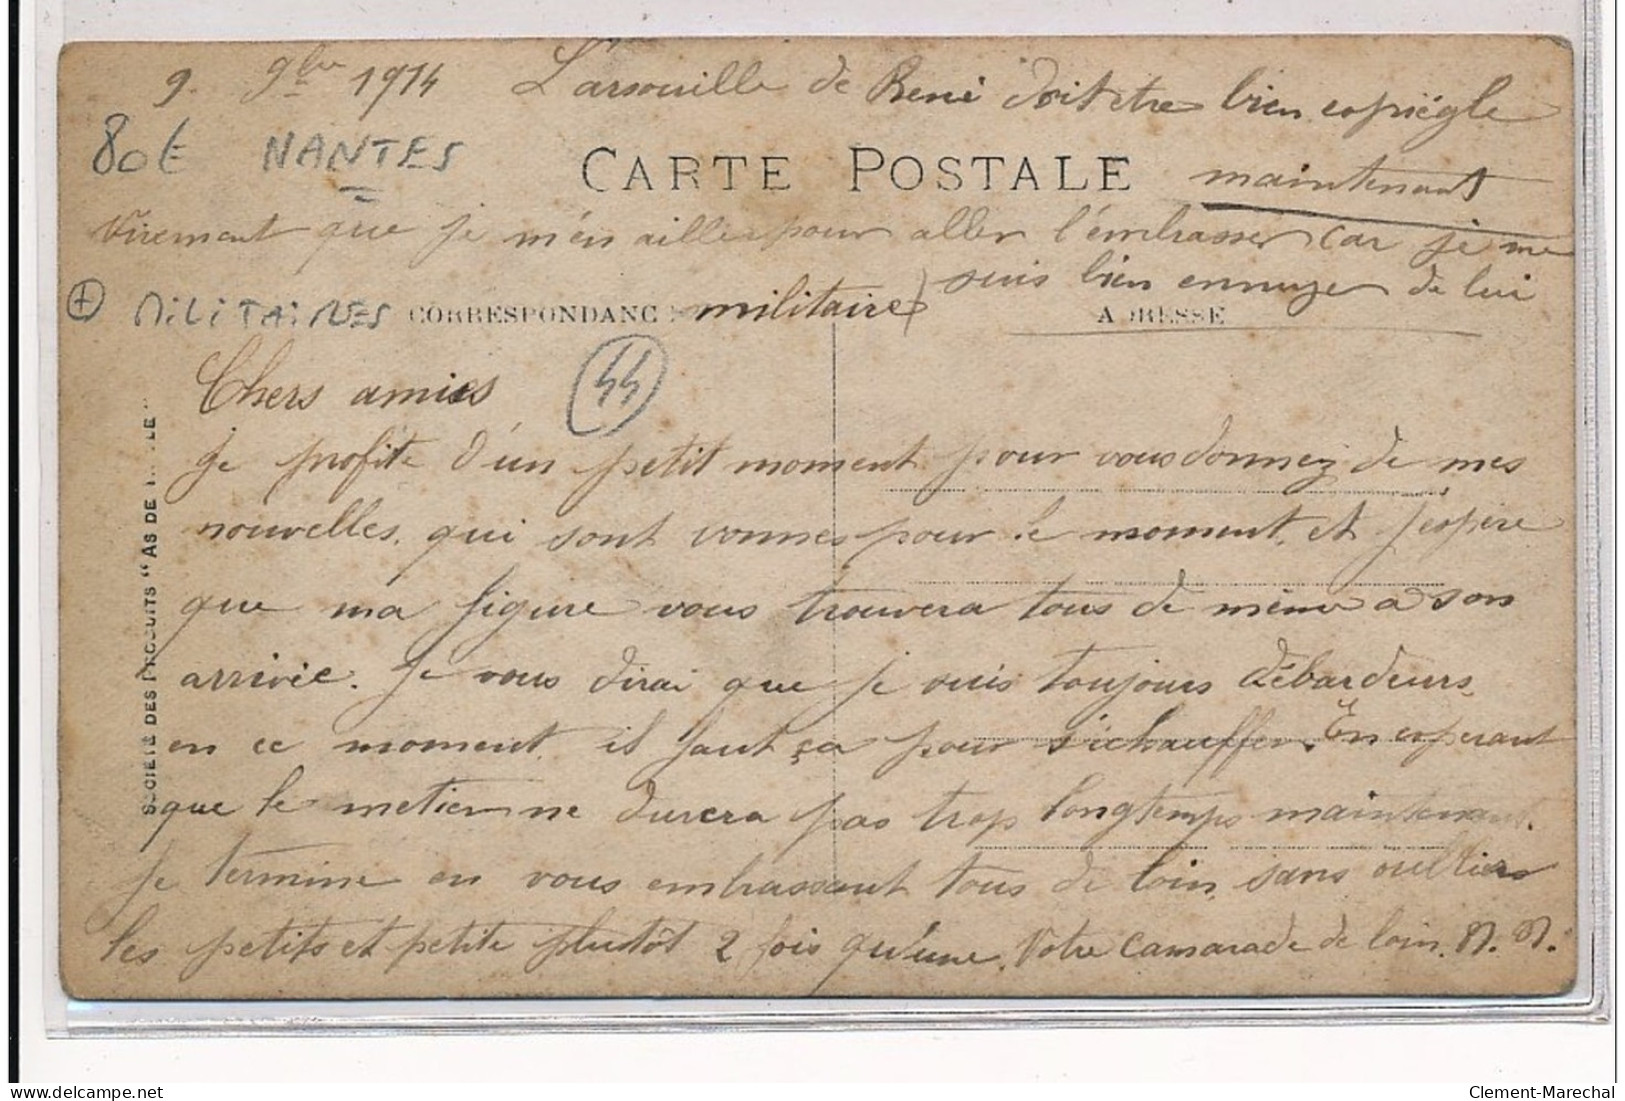 9. 9bre 1914 L'arsouille de René doit etre bien espiègle
80€ NANTES CARTE POSTALE maintenant
Virement que je m'en aille pour aller l'embrasser car je me
suis bien ennuyer de lui
+ MILITAIRES CORRESPONDANC militaire) A RESSE
Chers amies 44
je profite d'un petit moment pour vous donnez de mes
nouvelles, qui sont vonnes pour le moment, et j'espère
que ma figure vous trouvera tous de même a son
arrivée. Je vous dirai que je suis toujours débardeurs
en ce moment, il faut ça pour s'échauffer. En esperant
que le metier ne durera pas trop longtemps maintenant.
Je termine en vous embrassant tous de loin, sans oublier
les petits et petite plutôt 2 fois qu'une. Votre camarade de loin. N. N.
SOCIETE DES PRODUITS "AS DE
Clement-Marechal